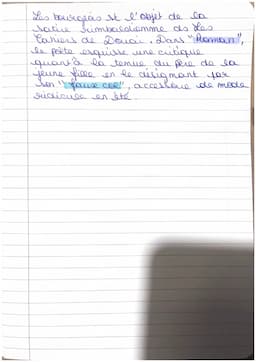 Les bourgeois st l'objet de la
satire rimbaldienne ds Les
Cahiers de Douai. Dans "Roman",
le poète esquisse une critique
quant à la tenue du père de la
jeune fille en le désignant par
son "faux col", accessoire de mode
ridicule en été.